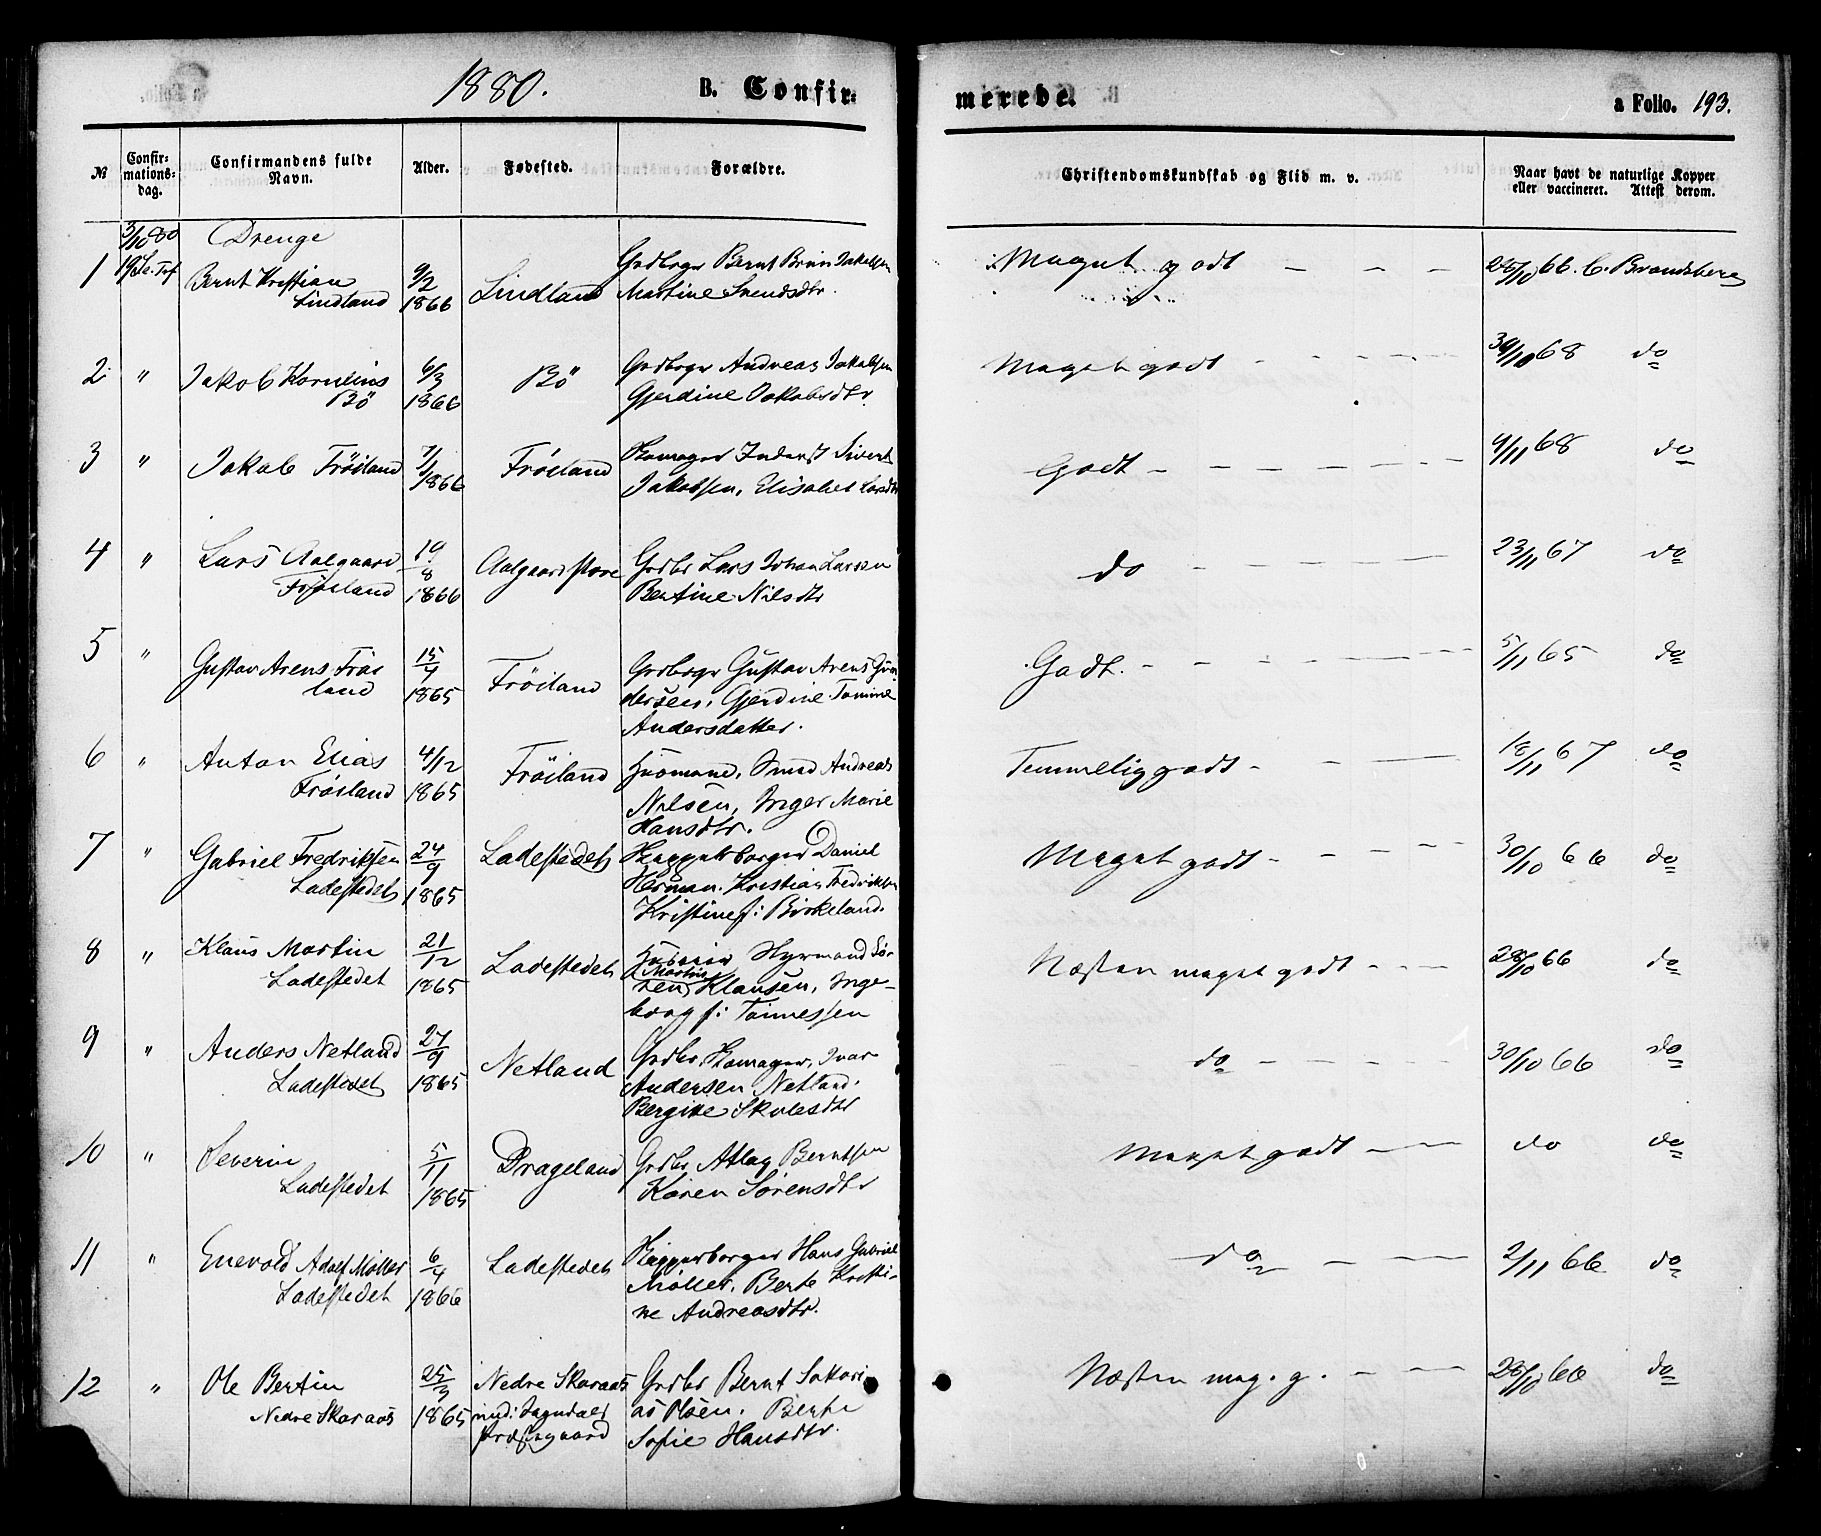 1880.
B. Confir-
merede.
a Folio. 193.
№
Confir-
mations-
dag.
Confirmandens fulde
Navn.
Alder.
Fødested.
Forældre.
Christendomskundskab og Flid m. v.
Naar havt de naturlige Kopper
eller vaccineret. Attest derom.
3/10 80
19 Se. Trf
Drenge
1 Bernt Kristian
Lindland
9/2
1866
Lindland
Grdbrgr Bernt Brun Jakobsen
Martine Svendsdtr.
Meget godt
25/10 66. C. Brandsberg
2 " Jakob Kornelius
Bö
6/3
1866
Bö
Grdbrgr Andreas Jakobsen
Gjerdine Jakobsdtr.
Meget godt
30/10 68 do
3 " Jakob Fröiland
7/3
1866
Fröiland
Inderst Sivert
Jakobsen, Elisabet Larsdtr
Godt
9/11 68 do
4 " Lars Aalgaard
Fröiland
19/8
1866
Aalgaard
Grdbr Lars Johan Larsen
Bertine Nilsdtr
do
23/11 67 do
5 " Gustav Arens Fröi
land
15/4
1865
Fröiland
Grdbrgr Gustav Arens Gun
dersen, Gjerdine Tomine
Andersdatter.
Godt.
5/11 65 do
6 " Anton Elias
Fröiland
4/12
1865
Fröiland
Husmand, Smed Andreas
Nilsen, Inger Marie
Hansdtr.
Temmelig godt
18/11 67 do
7 " Gabriel Fredriksen
Ladestedet
24/9
1865
Ladestedet
Daniel
Herman Kristian Fredriksen
Kristine f: Birkeland.
Meget godt
30/10 66 do
8 " Klaus Martin
Ladestedet
21/12
1865
Ladestedet
Styrmand Sö-
Martin
ren Klausen, Inge-
borg f: Tönnessen
Næsten meget godt
28/10 66 do
9 " Anders Netland
Ladestedet
27/9
1865
Netland
Grdbr. Skomager, Ivar
Andersen Netland.
Bergitte Skulesdtr
do
30/10 66 do
10 " Severin
Ladestedet
5/11
1865
Drageland
Grdbr Atlag Berntsen
Karen Sörensdtr
Meget godt
do do
11 " Enevold Adolf Möller
Ladestedet
6/4
1866
Ladestedet
Skipperborger Hans Gabriel
Möller, Berte Kristi-
ne Andreasdtr.
do
2/11 66 do
12 " Ole Bertin
Nedre Skaraas
25/3
1865
Nedre Skaraas
ind: Sogndals
Præstegaard
Grdbr Bernt Sakari
as Olsen. Berte
Sofie Hansdtr.
Næsten meg. g.
26/10 66 do